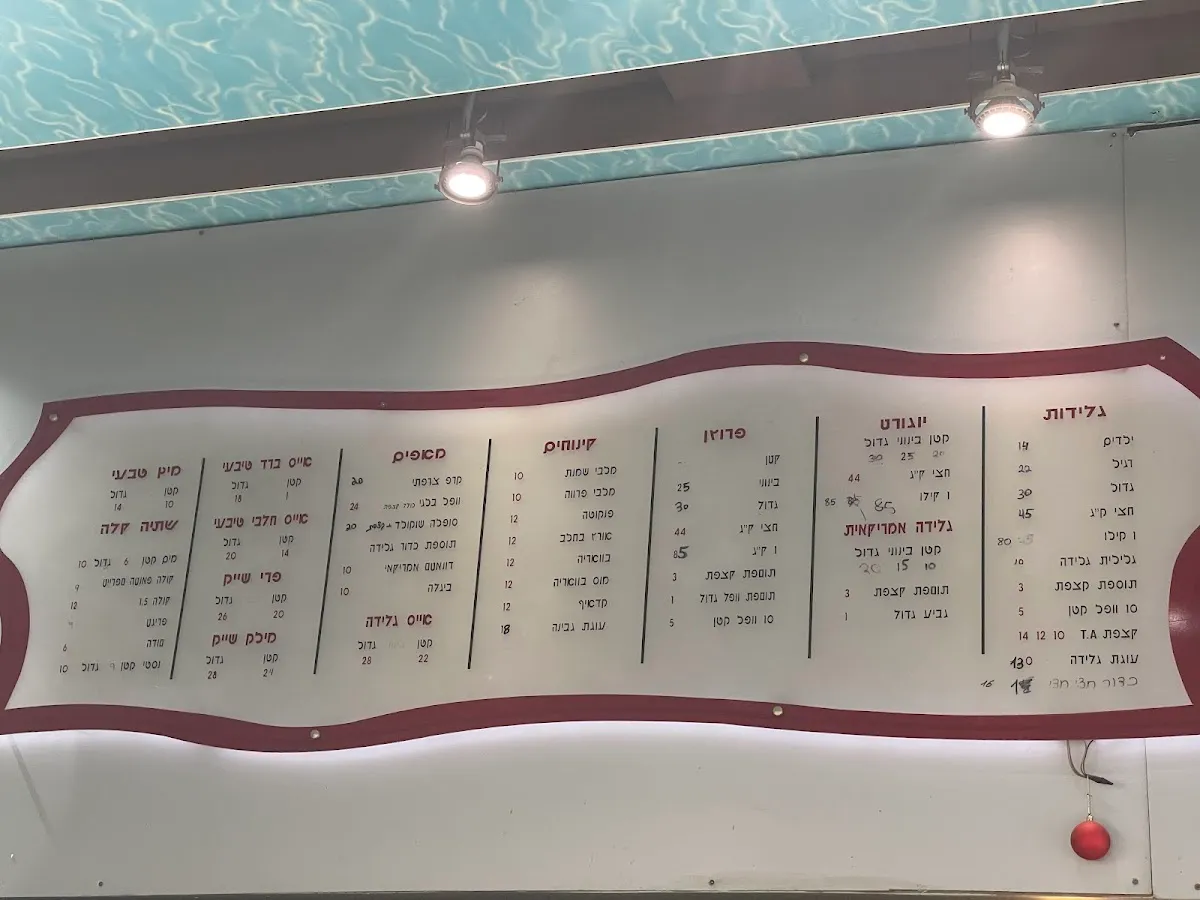 גלידות
ילדים 14
רגיל 22
גדול 30
חצי ק״ג 45
1 קילו 80
גלילית גלידה 10
תוספת קצפת 3
10 וופל קטן 5
קצפת T.A 10 12 14
עוגת גלידה 130
כדור חצי חצי 16
יוגורט
קטן בינוני גדול
20 25 30
חצי ק״ג 44
1 קילו 85 85
גלידה אמריקאית
קטן בינוני גדול
10 15 20
תוספת קצפת 3
גביע גדול 1
פרוזן
קטן
בינוני 25
גדול 30
חצי ק״ג 44
1 ק״ג 85
תוספת קצפת 3
תוספת וופל גדול 1
10 וופל קטן 5
קינוחים
מלבי שמנת 10
מלבי פרווה 10
פנקוטה 12
אורז בחלב 12
בוואריה 12
מוס בוואריה 12
קדאיף 12
עוגת גבינה 18
מאפים
קרפ צרפתי 20
וופל בלגי כולל קצפת 24
סופלה שוקולד + קצפת 20
תוספת כדור גלידה
דוואנטס אמריקאי 10
ביגלה 10
אייס גלידה
קטן גדול
22 28
אייס ברד טיבעי
קטן גדול
1 18
אייס חלבי טיבעי
קטן גדול
14 20
פרי שייק
קטן גדול
20 26
מילק שייק
קטן גדול
24 28
מיץ טבעי
קטן גדול
10 14
שתיה קלה
מים קטן 6 גדול 10
קולה פאנטה ספרייט 9
קולה 1.5 12
פריגט
סודה 6
נסטי קטן גדול 10